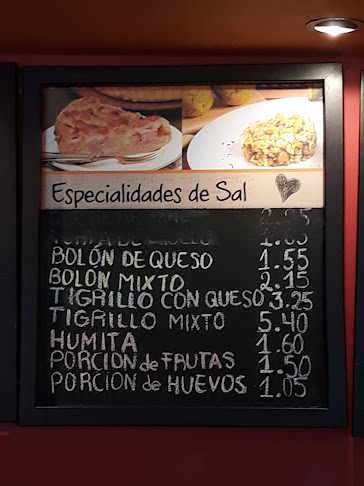 Especialidades de Sal
BOLÓN DE QUESO 1.55
BOLON MIXTO 2.15
TIGRILLO CON QUESO 3.25
TIGRILLO MIXTO 5.40
HUMITA 1.60
PORCION de FRUTAS 1.50
PORCION de HUEVOS 1.05